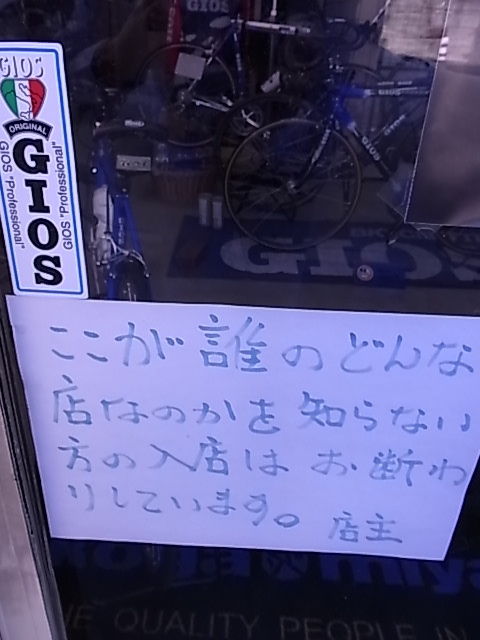 GIOS
GIOS
ORIGINAL
GIOS
GIOS "Professional"
GIOS "Professional"
GIOS
ここが誰のどんな
店なのかを知らない
方の入店はお断わ
りしています。 店主
QUALITY PEOPLE IN